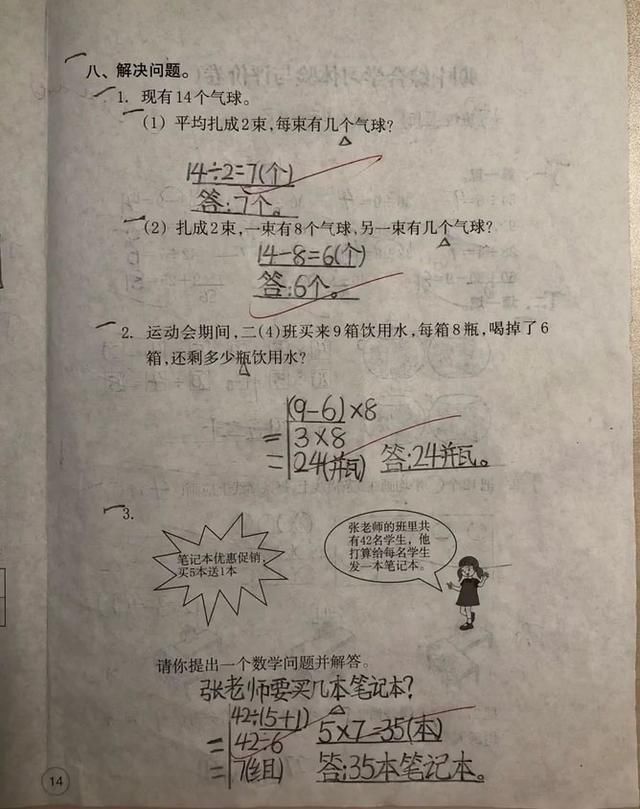 八、解决问题。
1. 现有14个气球。
(1) 平均扎成2束,每束有几个气球?
14÷2=7(个)
答:7个。
(2) 扎成2束,一束有8个气球,另一束有几个气球?
14-8=6(个)
答:6个。
2. 运动会期间,二(4)班买来9箱饮用水,每箱8瓶,喝掉了6
箱,还剩多少瓶饮用水?
(9-6)×8
=3×8
=24(瓶) 答:24瓶。
3.
笔记本优惠促销,
买5本送1本
张老师的班里共
有42名学生,他
打算给每名学生
发一本笔记本。
请你提出一个数学问题并解答。
张老师要买几本笔记本?
42÷(5+1)
=42÷6
=7(组)
5×7=35(本)
答:35本笔记本。
14